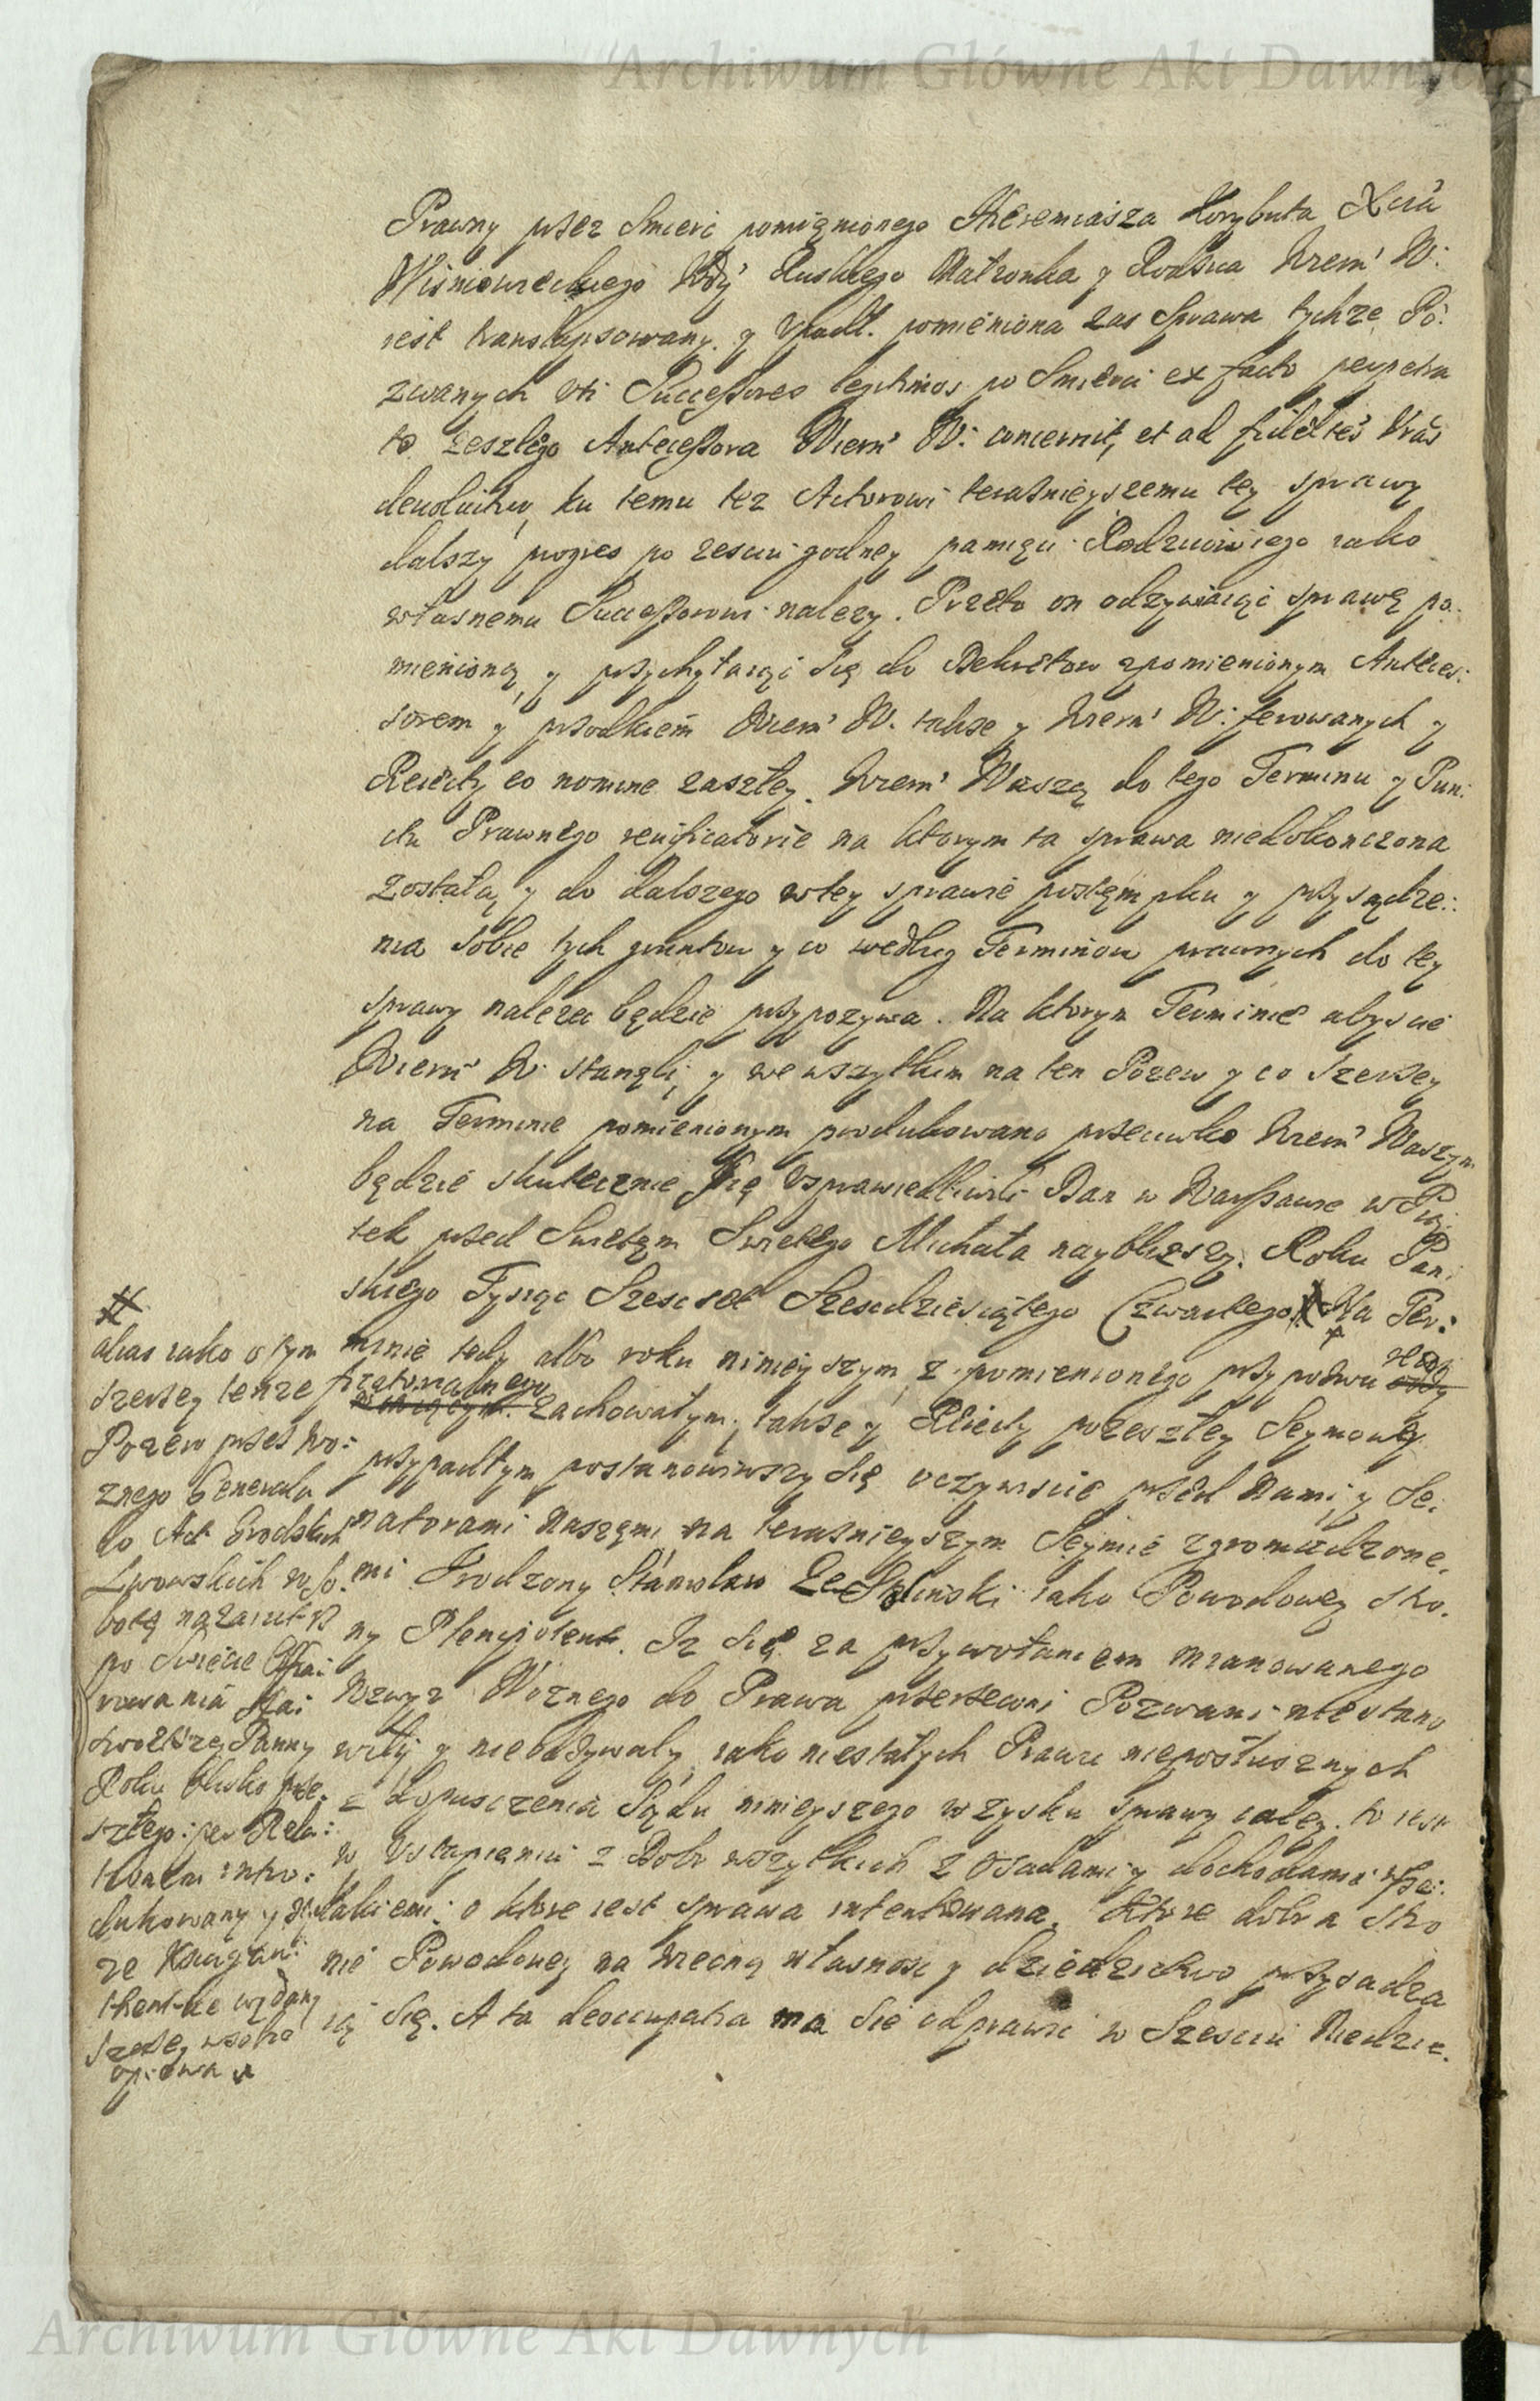 Archiwum Główne Akt Dawnych
Prawny przez Smierć pomięnionego Hieremiasza Korybuta Xcia
Wisniowieckiego Wdy Ruskiego Małzonka y Rodzica Wrem' W:
iest translapsowany y Upadł. pomieniona zas Sprawa tychze Po:
zwanych uti Successores legitimos po Smierci ex facto perpetra
to zeszłego Antecessora Wiern' W: concernit, et ad fidelites Vras
devolvitur, ku temu tez Actorowi terasnieyszemu tey sprawy
dalszy progres po zesciu godney pamięci Rodzica iego iako
własnemu Successorowi nalezy. Przeto on odzywaiąc sprawę po:
mienioną y przychylaiąc się do Dekretow zpomienionym Anteces:
sorem y przodkiem Wiern' W. takze y Wrem' W: ferowanych y
Reiecty eo nomine zaszłey. Wrem' Waszą do tego Terminu y Pun:
ctu Prawnego reificatorie na ktorym ta sprawa niedokonczona
została, y do dalszego wtey sprawie postęmpku y przysądze:
nia sobie tych gruntow y co według Terminow prawnych do tey
sprawy nalezec będzie przypozywa. Na ktorym Terminie abyscie
Wiern' W: stanęli, y we wszytkim na ten Pozew y co szerzey
na Terminie pomienionym produkowano przeciwko Wrem' Waszym
będzie skutecznie się usprawiedliwili Dan w Warszawie w Pią:
tek przed Swiętęm Swiętego Michała nayblizszy. Roku Pan:
skiego Tysiąc Szescset Szescdziesiątego Czwartego Na Ter:
minie tedy albo roku ninieyszym z pomienionego przypozwu
zachowałym, takze y Reiecty przeszłey Seymowey
przypadłym postanowiwszy się oczywiscie przed Nami y Se:
natorami Naszęmi na terasnieyszym Seymie zgromadzone.
mi Urodzony Stanisław Ze iako Powodowey stro.
ny Plenipotent. Iz się za przywołaniem mianowanego
Wzwyz Woznego do Prawa przerzeczeni Pozwani nie stano
wiły y nieodzywały, iako niestałych Prawu nieposłusznych
z dopusczenia Sądu ninieyszego w zysku sprawy całey. to iest
w Ustąpieniu z Dobr wszytkich z osadami y dochodami wsze:
lakiemi o ktore iest sprawa intentowana. Ktore dobra stro
nie Powodowey na wieczną własnosc y dziedzictwo przysadza
ią się. A ta deoccupatia ma się odprawic w Szesciu Niedzie.
alias iako o tym
szerzey tenze
Pozew przez Wo:
znego Generała
do Act Grodzkich
Lwowskich w So.
botę nazaiutrz
po Swięcie Offia:
rowania Nai
swiętszey Panny
Roku blisko prze.
szłego: per Rela:
tionem intro:
dukowany y
ze Xsiąg au:
thentice wydany
szerzey w sobie
opiewa
Archiwum Główne Akt Dawnych